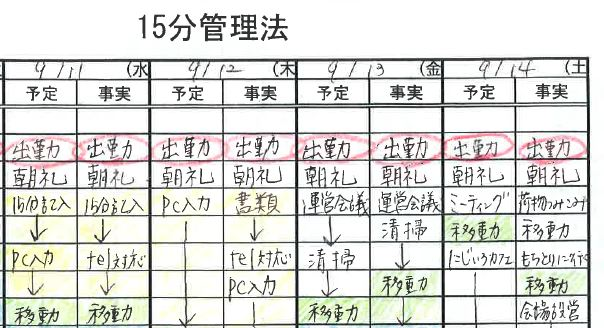 15分管理法
9/11 (水 9/12 (木 9/13 (金 9/14 (土
予定 事実 予定 事実 予定 事実 予定 事実
出勤 出勤 出勤 出勤 出勤 出勤 出勤 出勤
朝礼 朝礼 朝礼 朝礼 朝礼 朝礼 朝礼 朝礼
15分記入 15分記入 PC入力 書類 運営会議 運営会議 ミーティング 荷物つみこみ
↓ ↓ ↓ 清掃 移動 移動
PC入力 tel対応 tel対応 清掃 ↓ にじいろカフェ
↓ ↓ PC入力 ↓ 移動 移動
移動 移動 ↓ ↓ 移動 ↓ 会場設営